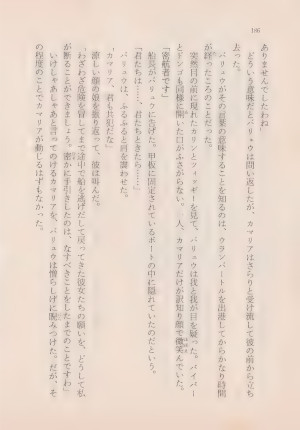 106
ありませんでしたわね」
どういう意味だとバリュウは問い返したが、カマリアはさらりと受け流して彼の前から立ち
去った。
バリュウがその言葉の意味することを知るのは、ウランバートルを出港してからかなり時間
が経ったころのことだった。
突然目の前に現れたカリンとフィッギーを見て、バリュウは我と我が目を疑った。バイパー
とドンゴも同様に開いた口がふさがらない。一人、カマリアだけが訳知り顔で微笑んでいた。
「密航者です」
船長がバリュウに告げた。甲板に固定されているボートの中に隠れていたのだという。
「君たちは……、君たちときたら……」
バリュウは、ふるふると肩を震わせた。
「カマリア、君も共犯だな」
涼しい顔の姫を振り返って、彼は叫んだ。
「わざわざ危険を冒してまで途中で船を逃げだして戻ってきた彼女たちの願いを、どうして私
が断ることができましょう。密かに手引きしたのは、なすべきことをしたまでのことですわ」
けしゃあしゃあと言ってぬけるカマリアを、バリュウは憎らしげに睨みつけた。だが、そ
の程度のことでカマリアが動じるはずもなかった。